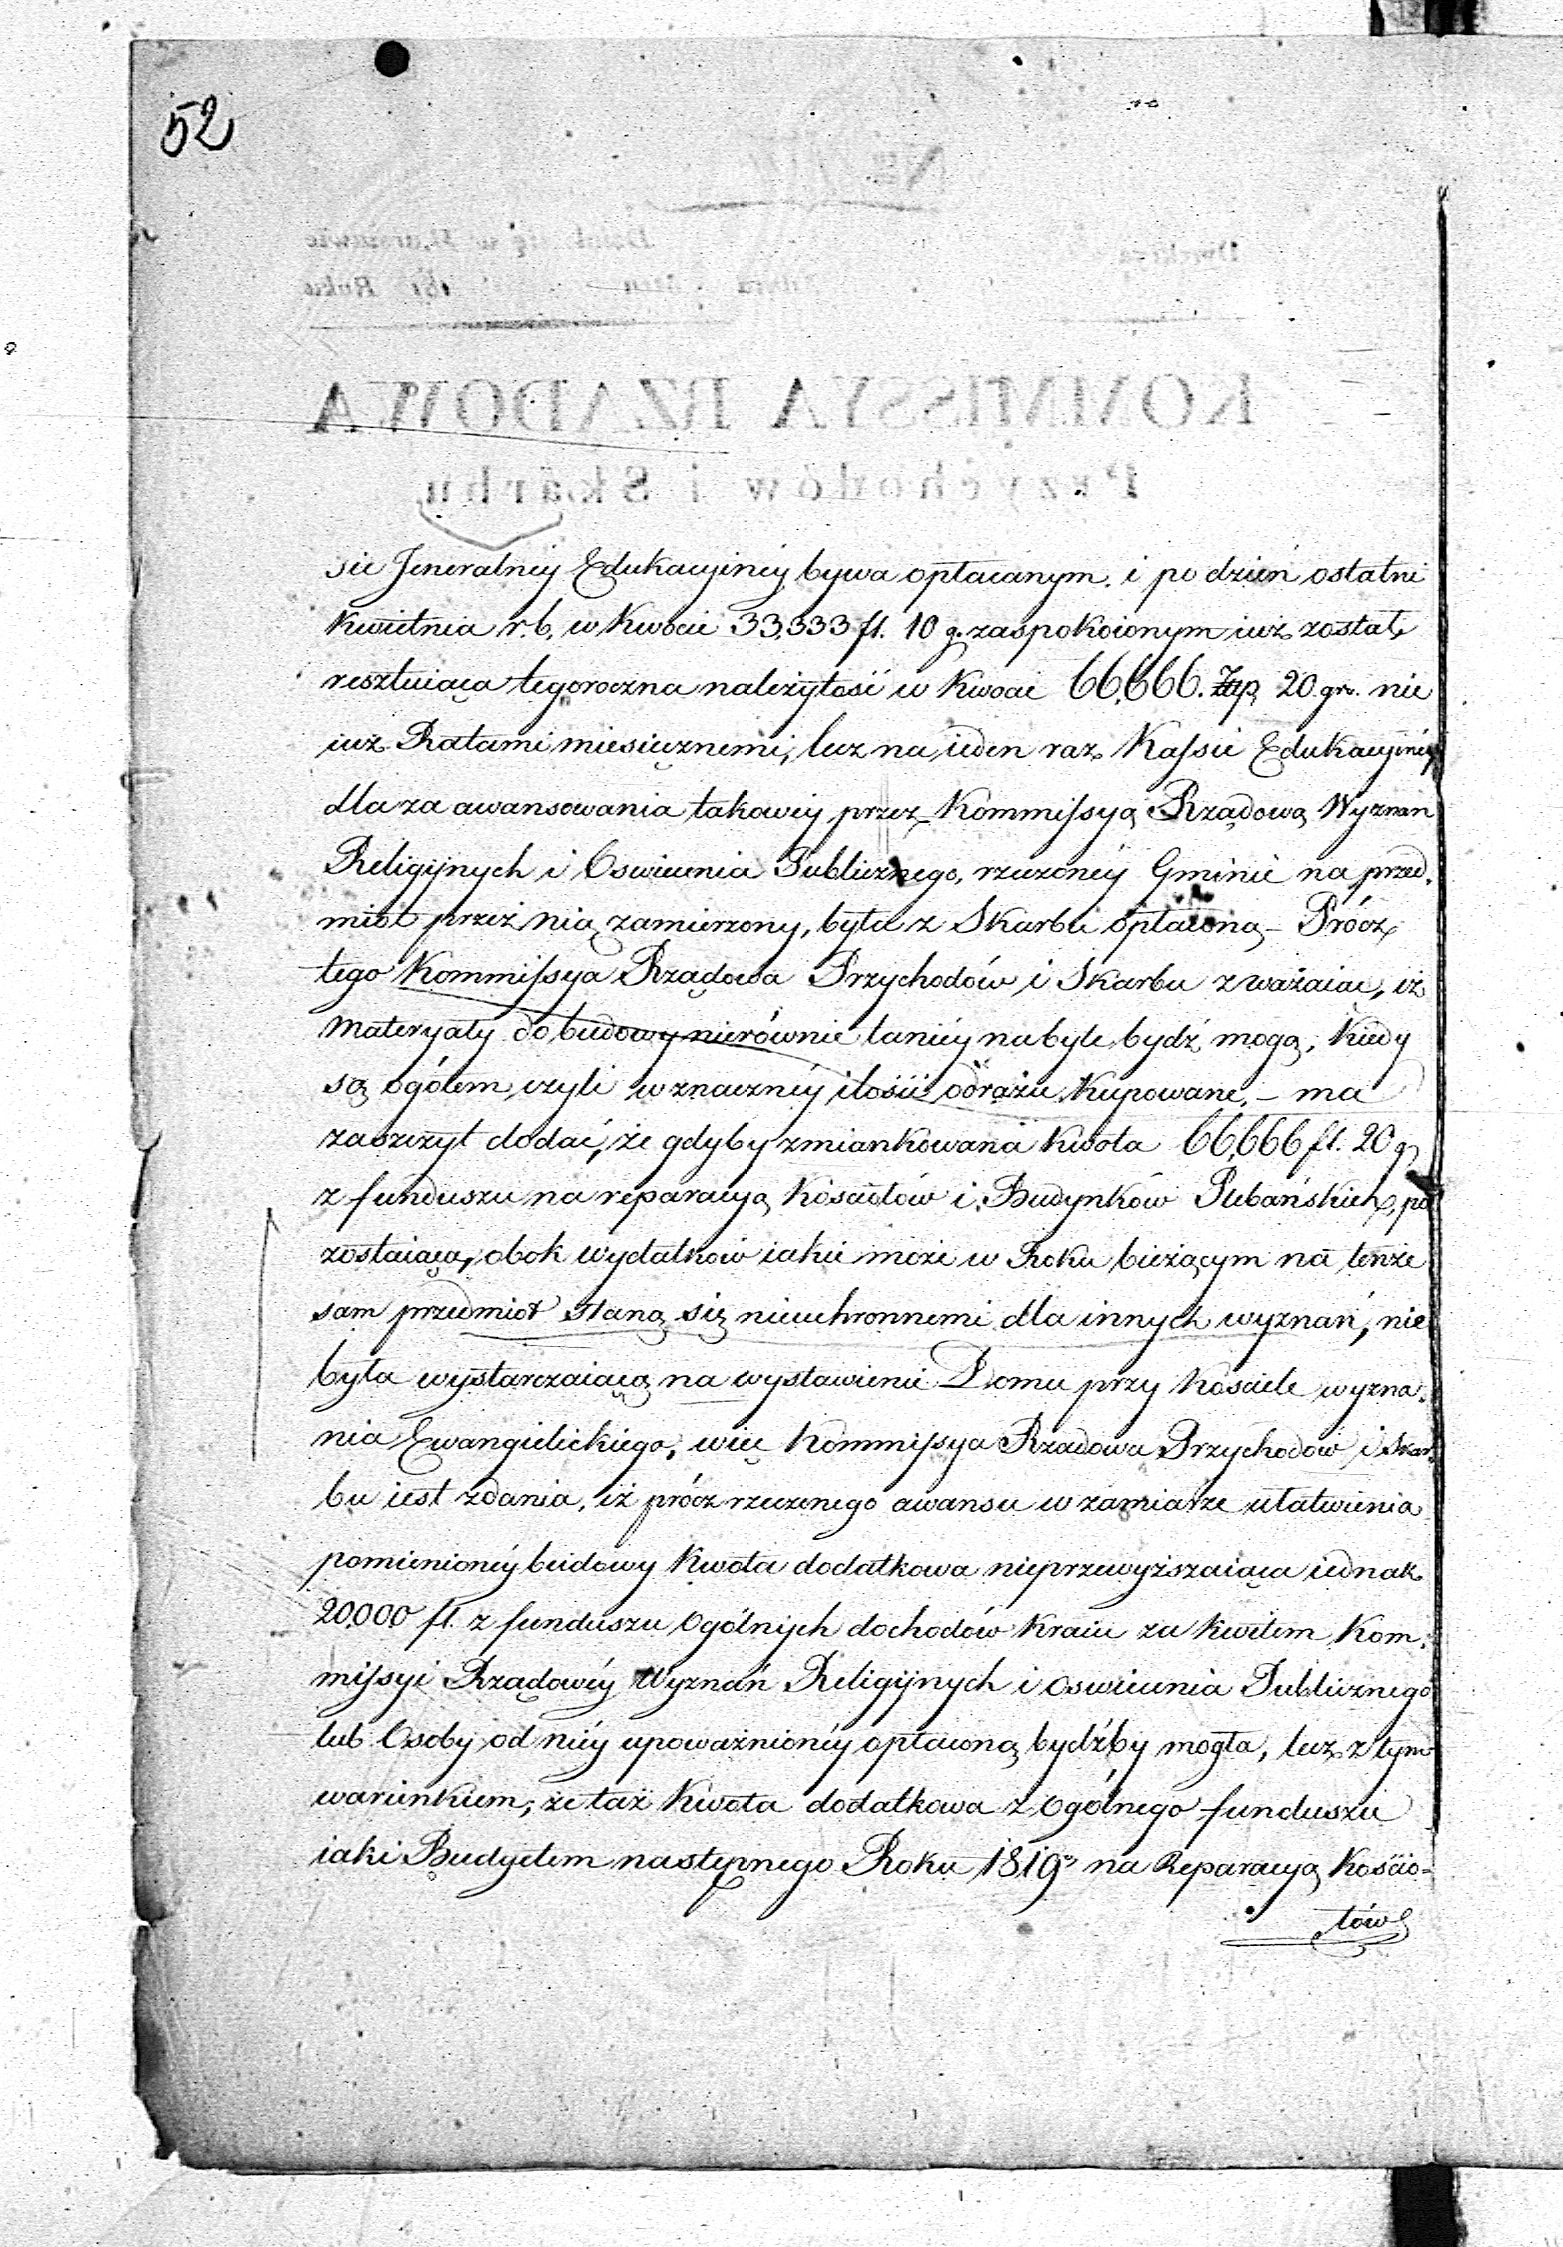 52
sie Jeneralnéy Edukacyinéy bywa opłacanym i po dzień ostatni
Kwietnia r. b. w Kwocie 33,333 fl. 10 g. zaspokoionym iuż został,
resztuiąca tegoroczna należytość w Kwocie 66,666. Złp. 20 gr. nie
iuż Ratami miesięcznemi, lecz na ieden raz Kassie Edukacyinéy
dla za awansowania takowéy przez Kommissyą Rządową Wyznań
Religijnych i Oswiecenia Publicznego, rzeczonéy Gminie na przed-
miot przez nią zamierzony, była z Skarbu opłaconą – Prócz
tego Kommissya Rządowa Przychodów i Skarbu zważaiąc, iż
Materyały do budowy nierównie taniéy nabyte bydź mogą, Kiedy
są ogółem czyli w znacznéy ilości odrazu Kupowane, – ma
zaszczyt dodać, że gdyby zmiankowana Kwota 66,666 fl. 20 g
z funduszu na reparacyą Kościołów i Budynków Plebańskich, po
zostaiąca, obok wydatków iakie może w Roku bieżącym na tenże
sam przedmiot staną się nieuchronnemi dla innych wyznań, nie
była wystarczaiącą na wystawienie Domu przy Kościele wyzna-
nia Ewangielickiego, więc Kommissya Rządowa Przychodów i Skar-
bu iest zdania, iż prócz rzeczonego awansu w zamiarze ułatwienia
pomienionéy budowy Kwota dodatkowa nieprzewyższaiąca iednak
20,000 fl. z funduszu Ogólnych dochodów Kraiu za Kwitem Kom-
missyi Rządowéy Wyznań Religijnych i Oswiecenia Publicznego
lub Osoby od niéy upoważnionéy opłaconą bydźby mogła, lecz z tym
warunkiem, że taż Kwota dodatkowa z Ogólnego funduszu
iaki Budgetem następnego Roku 1819º na Reparacyą Kościo-
łów